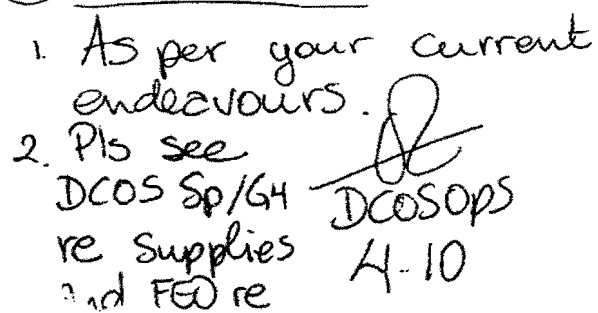 1. As per your current
endeavours.
2. Pls see
DCOS Sp/G4
re supplies
and FEO re
DCOSOps
4-10